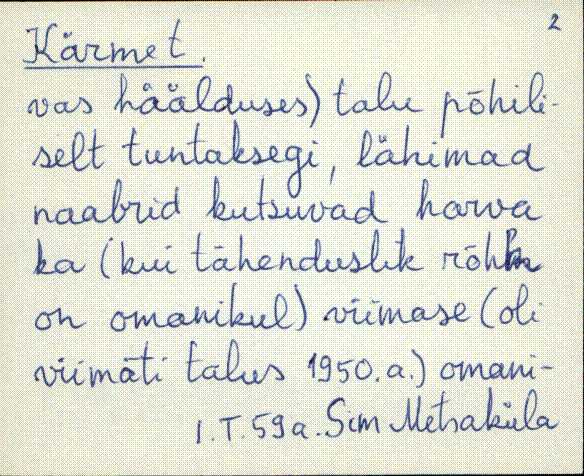 2
Kärmet.
vas häälduses) talu põhili-
selt tuntaksegi, lähimad
naabrid kutsuvad harva
ka (kui tähenduslik rõhk
on omanikul) viimase (oli
viimati talus 1950.a.) omani-
I.T. 59a. Sim Metsaküla